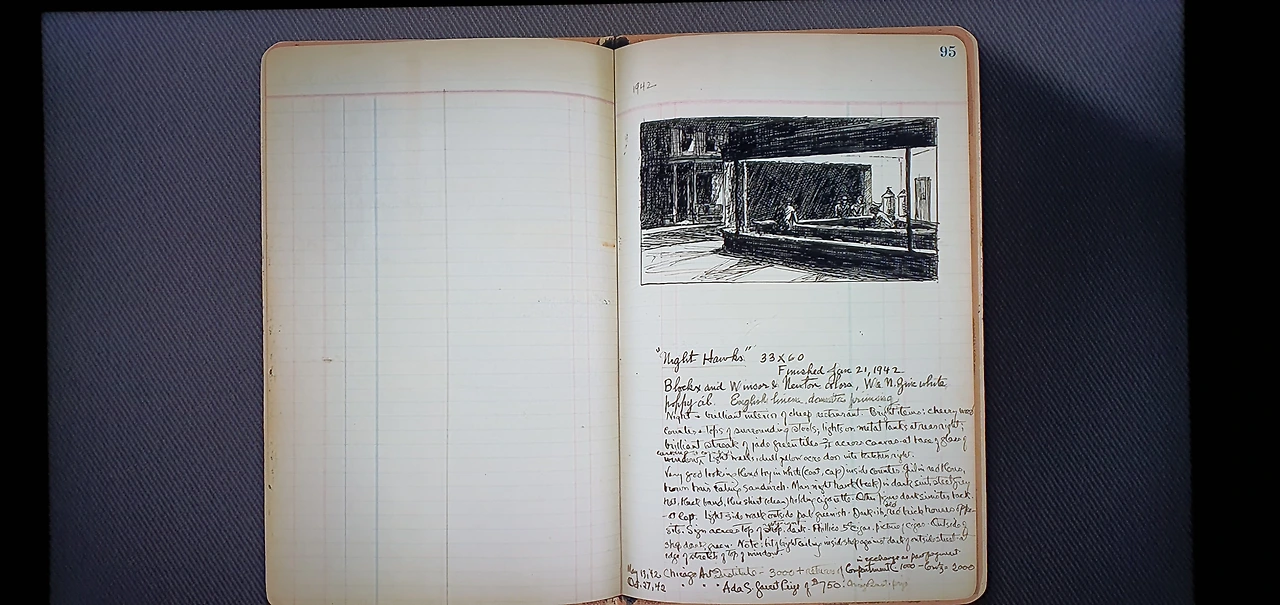 95
1942
"Night Hawks" 33 X 60
Finished Jan 21, 1942
Blockx and Winsor & Newton colors, W & N. Zinc white
poppy oil. English linen, domestic priming
Night + brilliant interior of cheap restaurant. Bright items: cherry wood
counter + tops of surrounding stools; lights on metal tanks at rear right;
brilliant streak of jade green tiles 3/4 across canvas at base of glass of
window curving at
Light walls, dull yellow ocre door into kitchen right.
Very good looking blond boy in white (coat, cap) inside counter. Girl in red blouse,
brown hair eating sandwich. Man night hawk (beak) in dark suit, steel grey
hat, black band, blue shirt (clean) holding cigarette. Other figure dark sinister back
- at left. Light side walk outside pale greenish. Darkish red brick houses oppo-
site. Sign across top of shop, dark - Phillies 5¢ cigar. picture of cigar. Outside of
shop dark, green. Note: bit of bright ceiling inside shop against dark of outside street - at
edge of stretch of top of window.
in exchange as part payment
May 13, 42 Chicago Art Institute - 3000 + return of Compartment C 1000 - 2000
Oct. 27, 42 " " Ada S. Garrett Prize of $750.